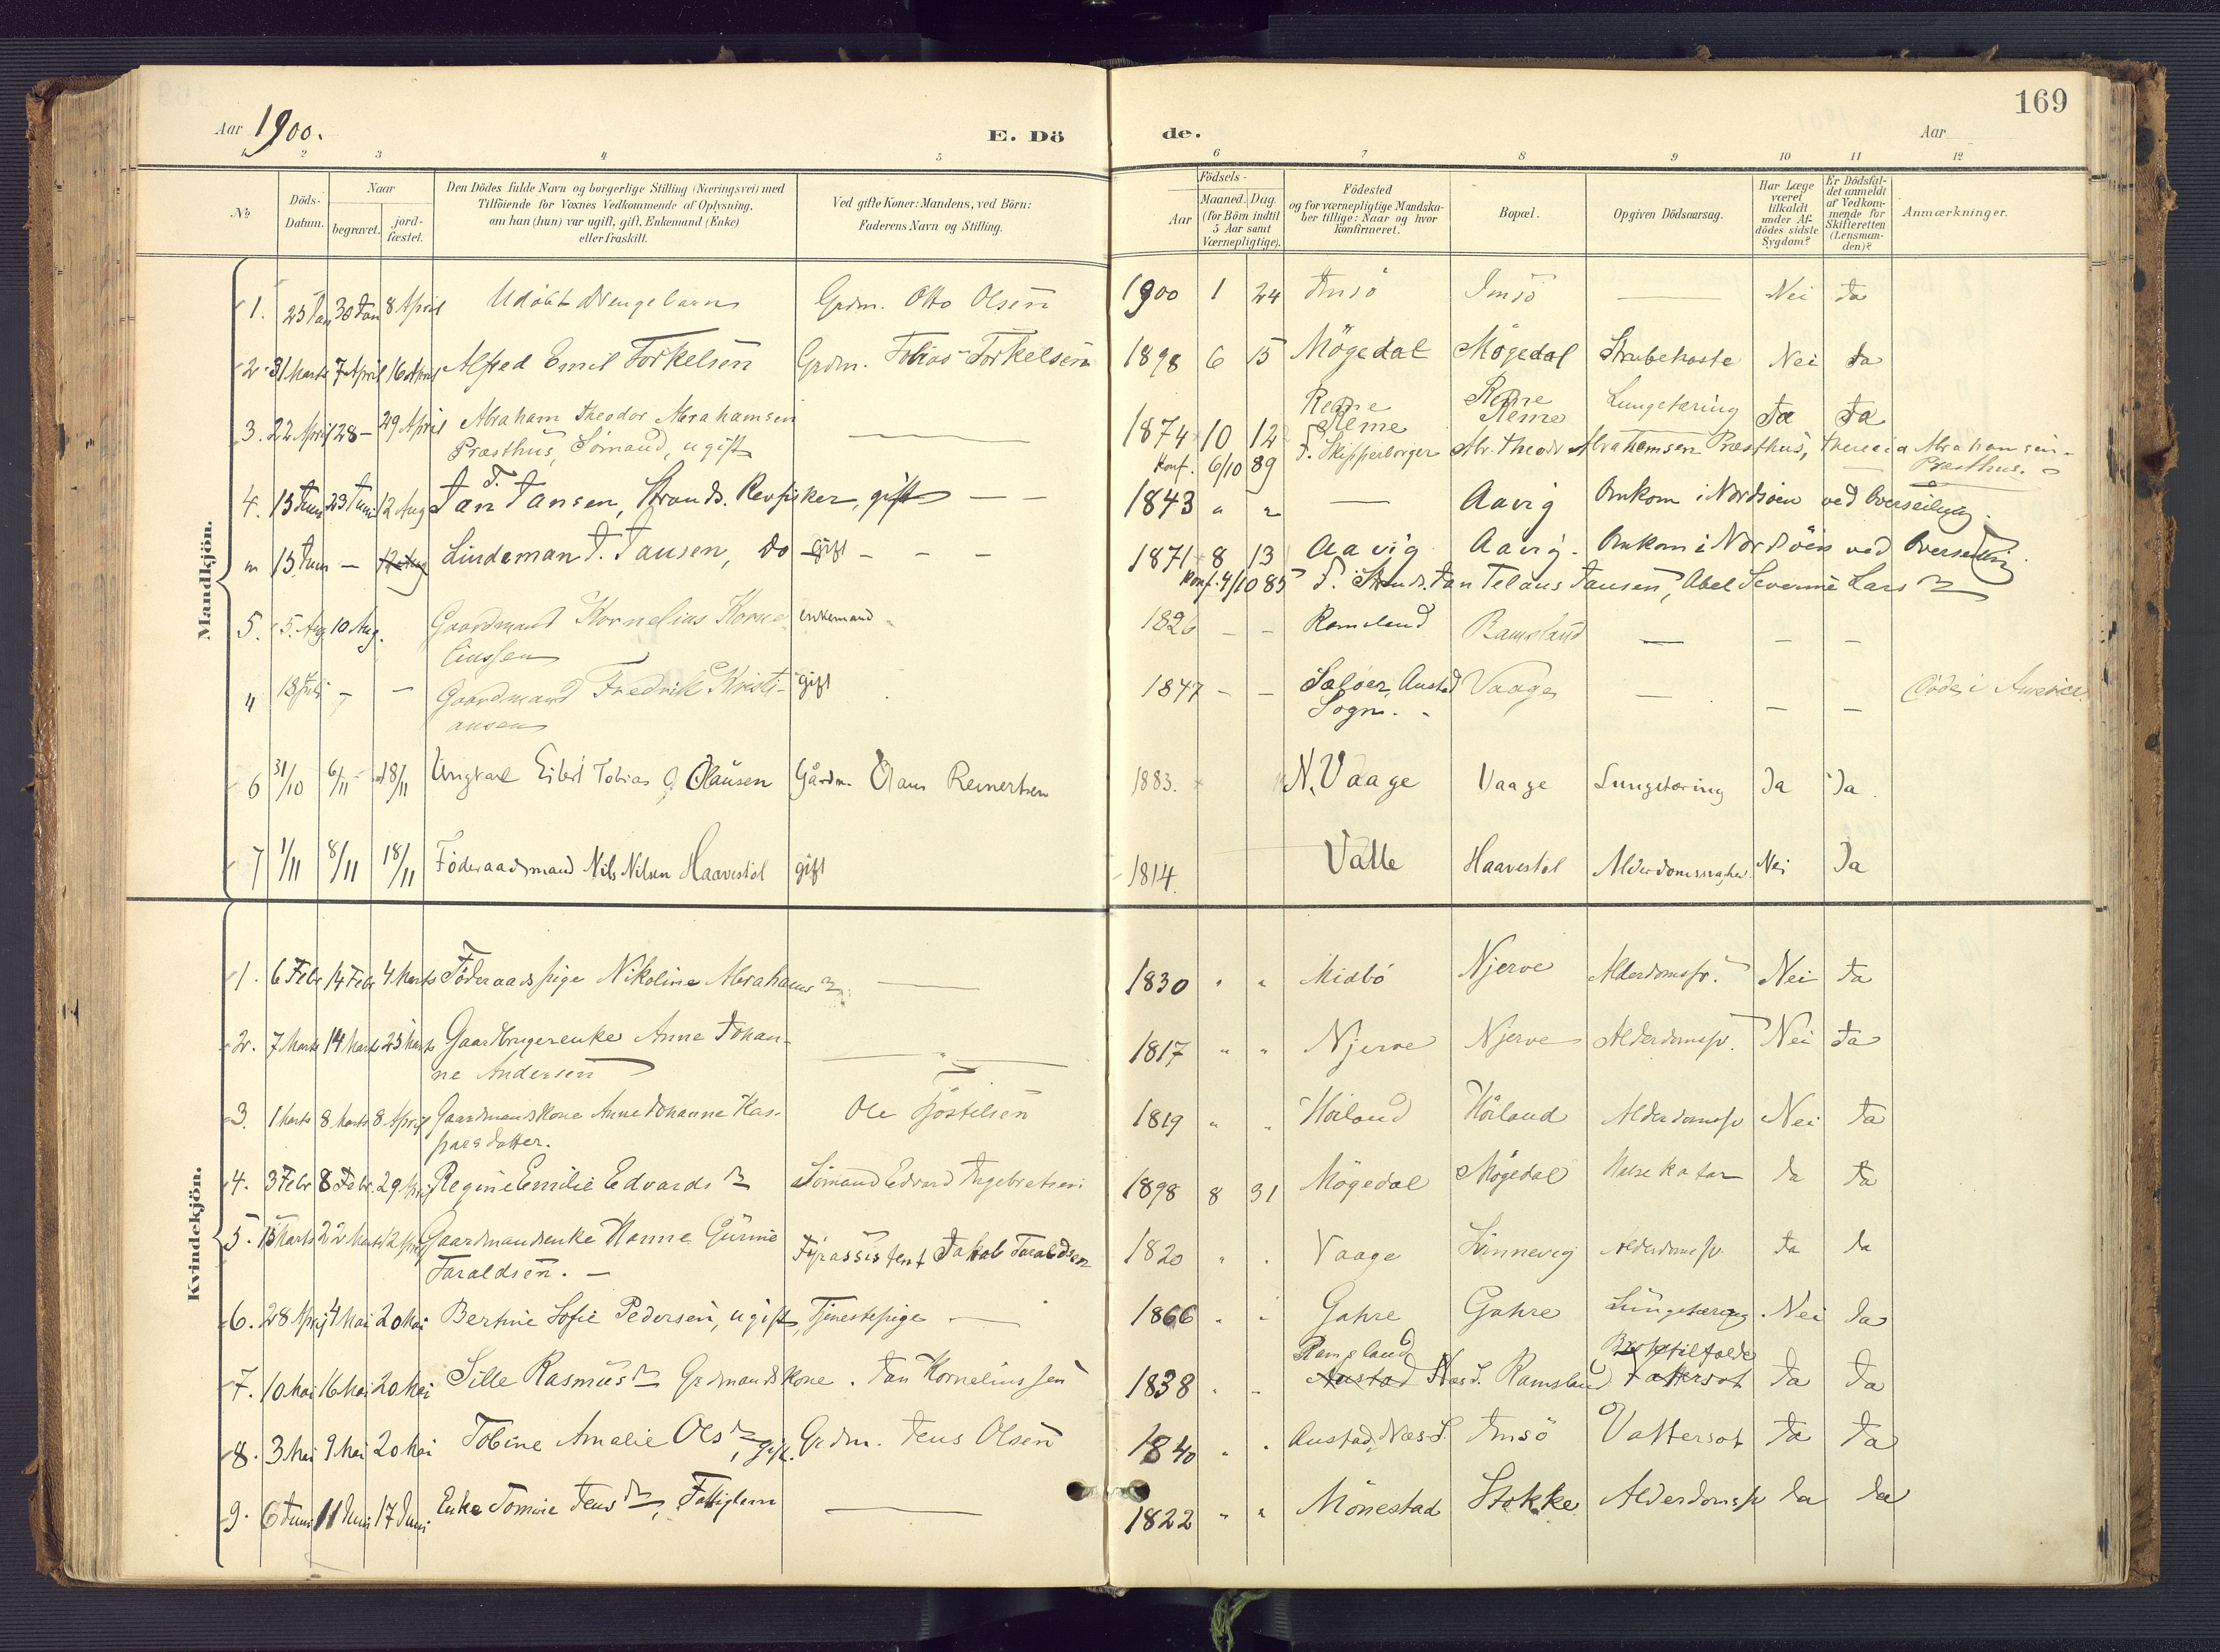 169
Aar 1900.
E. Dö de.
Aar
1 2 3 4 5 6 7 8 9 10 11 12
No
Döds-Datum.
Naar
begravet.
jord-fæstet.
Den Dödes fulde Navn og borgerlige Stilling (Næringsvei) med
Tilföiende for Voxnes Vedkommende af Oplysning,
om han (hun) var ugift, gift, Enkemand (Enke)
eller fraskilt.
Ved gifte Koner: Mandens, ved Börn:
Faderens Navn og Stilling.
Födsels-
Aar
Maaned. Dag.
(for Börn indtil
5 Aar samt
Værnepligtige).
Födested
og for værnepligtige Mandska-
ber tillige: Naar og hvor
konfirmeret.
Bopæl.
Opgiven Dödsaarsag.
Har Læge
været
tilkaldt
under Af-
dödes sidste
Sygdom?
Er Dödsfal-
det anmeldt
af Vedkom-
mende for
Skifteretten
(Lensman-
den)?
Anmærkninger.
Mandkjön.
1. 25 Jan 30 Jan 8 April Udöbt Drengebarn Grdm. Otto Olsen 1900 1 24 Imsö Imsö — Nei Ja
2. 31 Marts 7 April 16 April Alfred Emil Torkelsen Grdm. Tobias Torkelsen 1898 6 15 Mögedal Mögedal Strubehoste Nei Ja
3. 22 April 28 — 29 April Abraham Theodor Abrahamsen — 1874 10 12 Reme Reme Lungetæring Ja Ja
Præsthus, Sömand, ugift
Konf. 6/10 89 F. Skipperborger Abr. Theodr Abrahamsen Præsthus, Abrahamsen-
Præsthus.
4. 13 Juni 23 Juni 12 Aug Jan T. Jansen, Strands. gift — — 1843 " " — Aavig Omkom i Nordsöen ved Overseiling.
" 13 Juni — 12 Aug Lindeman J. Jansen, Do gift — — — 1871 8 13 Aavig Aavig. Omkom i Nordsöen ved Overseiling.
Konf. 4/10 85 F. Strands. Jan Telaus Jansen, Abel Severine Lars
5. 5. Aug 10 Aug. Gaardmand Kornelius Korne- enkemand 1826 — — Ramsland Ramsland — — —
liussen
" 18 Juli — — Gaardmand Fredrik Kristi- gift 1847 — — Salöer, Austad Vaage — — — Döde i America
ansen Sogn.
6 31/10 6/11 18/11 Ungkarl Eilert Tobias O Olausen Gårdm. Olaus Reinertsen 1883. N. Vaage Vaage Lungetæring Ja Ja.
7 1/11 8/11 18/11 Föderaadsmand Nils Nilsen Haavestöl gift 1814. Valle Haavestöl Alderdomssvaghed Nei Ja
Kvindekjön.
1. 6 Febr 14 Febr 4 Marts Föderaadspige Nikoline Abrahams — 1830 " " Midbö Njerve Alderdomssv. Nei Ja
2. 7 Marts 14 Marts 25 Marts Gaardbrugerenke Anne Johan- — 1817 " " Njerve Njerve Alderdomssv. Nei Ja
ne Andersen
3. 1 Marts 8 Marts 8 April Gaardmandskone Anne Johanne Kas- Ole Tjöstelsen 1819 " " Höiland Höiland Alderdomssv Nei Ja
parsdatter.
4. 3 Febr 8 Febr. 29 April Regine Emilie Edvards Sömand Edvard Ingebretsen 1898 8 31 Mögedal Mögedal Halsekatar Ja Ja
5. 15 Marts 22 Marts April Gaardmandsenke Hanne Gurine Fyrassistent Jakob Taraldsen 1820 " " Vaage Alderdomssv. Ja Ja
Taraldsen. —
6. 28 April 4 Mai 20 Mai Bertine Sofie Pedersen, ugift, Tjenestepige — 1866 " " Gahre Gahre Lungetæring. Nei Ja
7. 10 Mai 16 Mai 20 Mai Sille Rasmus Grdmandskone. Jan Korneliussen 1838 " " Ramsland Austad Næs S. Ramsland Vattersot Ja Ja
8. 3 Mai 9 Mai 20 Mai Tobine Amalie Ols, gift. Grdm. Jens Olsen 1840 " " Austad, Næs S. Imsö Vattersot Ja Ja
9. 6 Juni 11 Juni 17 Juni Enke Tomine Jens, Fattiglem — 1822 " " Mönestad Stokke Alderdomssv Ja Ja